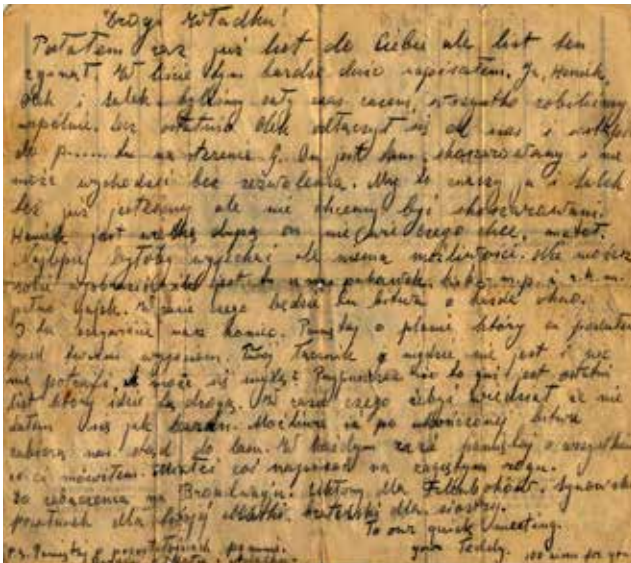 Drogi Władku!
Pisałem raz już list do Ciebie ale list ten
zginął. W liście tym bardzo dużo napisałem. Ja, Heniek,
Olek i Lolek byliśmy cały czas razem, wszystko robiliśmy
wspólnie. Lecz ostatnio Olek odłączył się od nas i wstąpił
do p.....du na terenie G. On jest tam skoszarowany i nie
może wychodzić bez zezwolenia. My to znaczy ja i Lolek
też już jesteśmy ale nie chcemy być skoszarowani.
Heniek jest wielką dupą on nie wie czego chce,
Najlepiej byłoby wyjechać ale niema możliwości. Nie możesz
sobie wyobrazić jest tu u nas pukawek, i r.k.m.
pełno W razie czego będzie tu bitwa o każde okno.
I to oczywiście nasz koniec. Pamiętaj o planie który ci posłałem
przed twoim wyjazdem. Twój nie jest i nic
nie potrafi. A może się mylę? jest ostatni
list który idzie tą drogą. W razie czego żebyś wiedział że nie
dałem się jak baran. Możliwe że po skończonej bitwie
zabiorą nas stąd do lasu. W każdym razie pamiętaj o wszystkim
co ci mówiłem. Miałeś coś napisać na rogu.
Do zobaczenia na Broadwayu. Ukłony dla synowski
pocałunek dla Matki, braterski dla siostry.
To our quick meeting.
your Teddy.
P.S. Pamiętaj o
100 for you